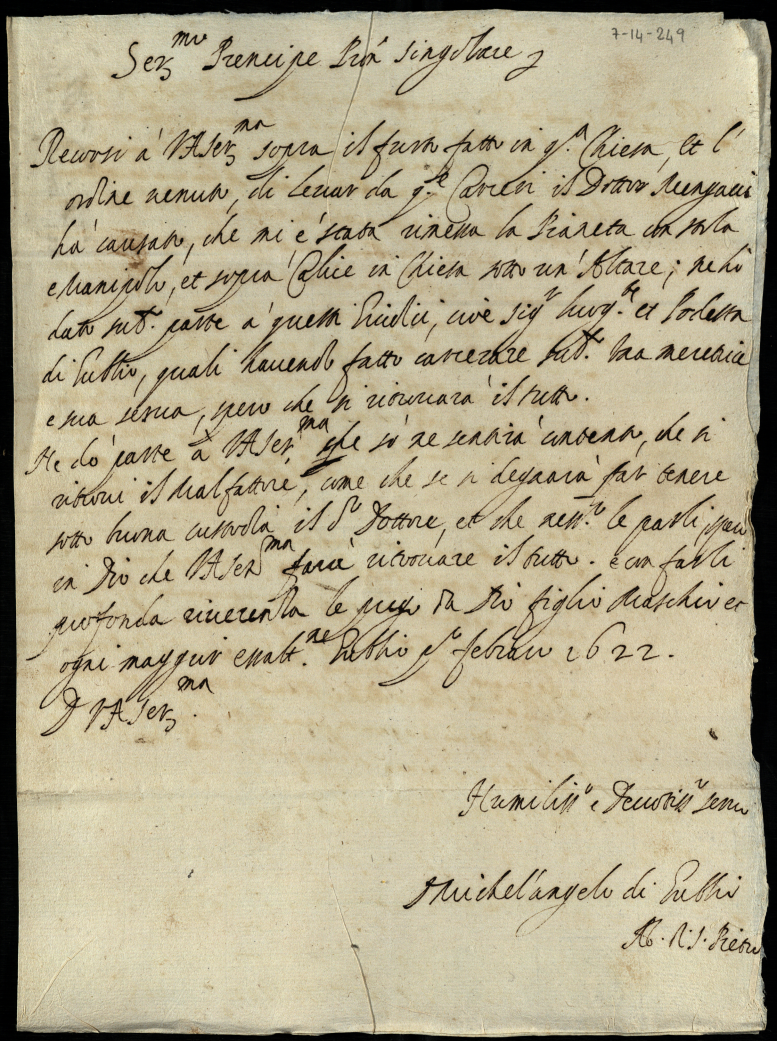 7-14-249
Ser.mo Prencipe Pron Singolare
à VA Ser.ma sopra il furto fatto in q.a Chiesa, Et l'
ordine venuto, di levar da q.e Carceri il Dottor
hà causato, che mi è stata rimessa la Pianeta con stola
e Manipolo, et sopra Calice in Chiesa sotto un' Altare; ne hò
dato sub.o parte a questi Giudici, cioè Sig.r Luog.te et Podestà
di Gubbio, quali havendo fatto carcerare sub.o una meretrice
e sua serva, spero che si ritrovarà il tutto.
Ne dò parte à VA Ser.ma che sò ne sentirà contento, che si
ritrovi il Malfattore, come che se si degnarà far tenere
sotto buona custodia il d.o Dottore, et che ness.o le parli, spero
in Dio che VA Ser.ma farà ritrovare il tutto. e con farli
profonda riverenza le prego da Dio figlio Maschio et
ogni maggior essalt.ne Gubbio p.o febraro 1622.
D VA Ser.ma
Humiliss.o e Devotiss.o servo
Michel'angelo di Gubbio
Ab. S. Pietro